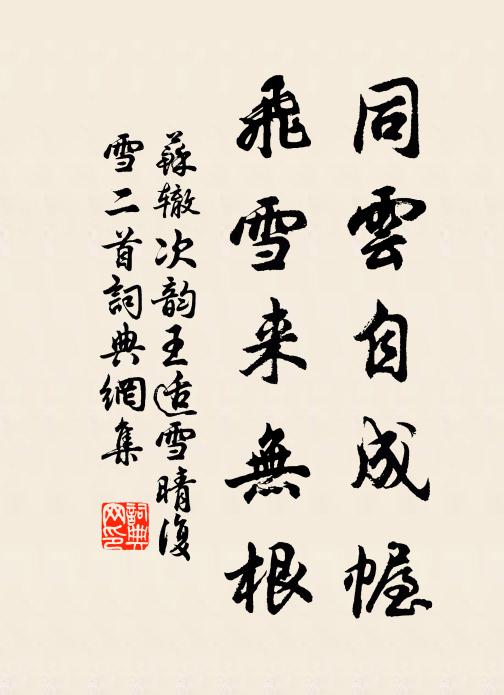 同雲自成幄
飛雪来無根
蘇辙次韵王适雪晴復
雪二首詞典網集
詞典
网印